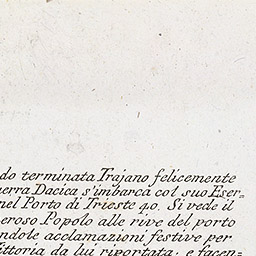 do terminata Trajano felicemente
uerra Dacica s'imbarca col suo Eser=
nel Porto di Trieste 40. Si vede il
eroso Popolo alle rive del porto
ndole acclamazioni festive per
ittoria da lui riportata; e facen=